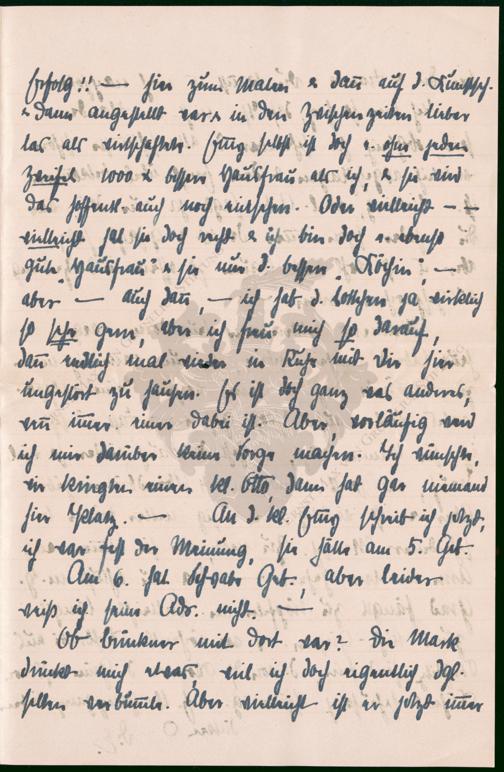 Erfolg!! — hier zum Malen & dann auf d. Kunstsch.
& dann angestellt war & in den Zwischenzeiten lieber
las als wirtschaftete. Emy selbst ist doch e. ohne jeden
Zweifel 1000 x bessere Hausfrau als ich, & sie wird
das hoffentl. auch noch einsehen. Oder vielleicht — —
vielleicht hat sie doch recht & ich bin doch e. ebenso
gute "Hausfrau" & sie nur d. bessere "Köchin", —
aber — auch dann, — ich hab d. Lottchen ja wirklich
so sehr gern, aber ich freu mich so darauf,
dann endlich mal wieder in Ruhe mit Dir hier
ungestört zu hausen. Es ist doch ganz was anderes,
wenn immer einer dabei ist. Aber, vorläufig werd
ich mir darüber keine Sorge machen. Ich wünschte,
wir kriegten einen kl. Otto, dann hat gar niemand
hier Platz. — An d. kl. Emy schreib ich jetzt,
ich war fest der Meinung, sie hätte am 5. Geb.
Am 6. hat Schwabe Geb., aber leider
weiß ich seine Adr. nicht. —
Ob Brückner mit dort war? Die Mark
drückt mich etwas, weil ich doch eigentlich dgl.
selten verbummle. Aber vielleicht ist er jetzt immer